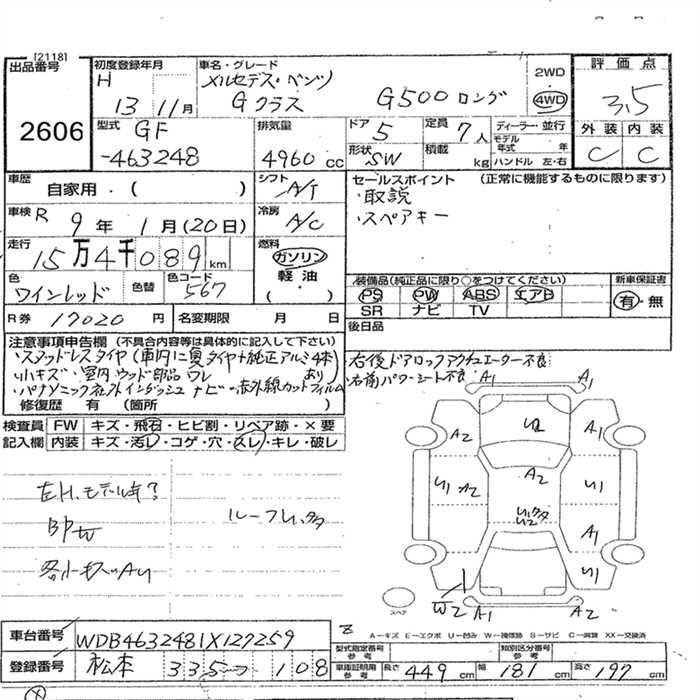 [2118]
出品番号
2606
初度登録年月
H 13年 11月
車名・グレード
メルセデス・ベンツ
Gクラス G500 ロング
2WD
4WD
評価点
3.5
外装 内装
C C
型式 GF
-463248
排気量
4960 cc
ドア 5
形状 SW
定員 7人
積載 kg
ディーラー・並行
モデル年式 年
ハンドル 左・右
車歴
自家用・( )
シフト A/T
セールスポイント (正常に機能するものに限ります)
・取説
・スペアキー
車検 R 9年 1月(20日)
冷房 A/C
走行 15万4千089km
燃料
ガソリン
軽油
( )
色
ワインレッド
色替
色コード
567
装備品(純正品に限り○をつけてください)
PS PW ABS エアB
SR ナビ TV
新車保証書
有・無
R券 17020円
名変期限 月 日
後日品
注意事項申告欄 (不具合内容等は具体的に記入して下さい)
・スタッドレスタイヤ(車内に夏タイヤ+純正アルミ4本)あり
・小キズ・室内ウッド部品ワレ
・パナソニック社外インダッシュナビ・赤外線カットフィルム
修復歴 有 (箇所
右後ドアロックアクチュエーター不良
右前パワーシート不良
検査員記入欄
FW キズ・飛石・ヒビ割・リペア跡・×要
内装 キズ・汚レ・コゲ・穴・スレ・キレ・破レ
左H.モデル年?
BPW
各小キズA4
A1 A1
A2 U2 A1
U1 A2 A2 U1
U2 A1
U1
W2 A1 A2
スペア
A-キズ E-エクボ U-凹み W-補修跡 S-サビ C-腐蝕 XX-交換済
車台番号 WDB4632481X127259
登録番号 松本 335 つ 108
型式指定番号参考
類別区分番号参考
車庫証明用参考 長さ 449cm 幅 181cm 高さ 197cm